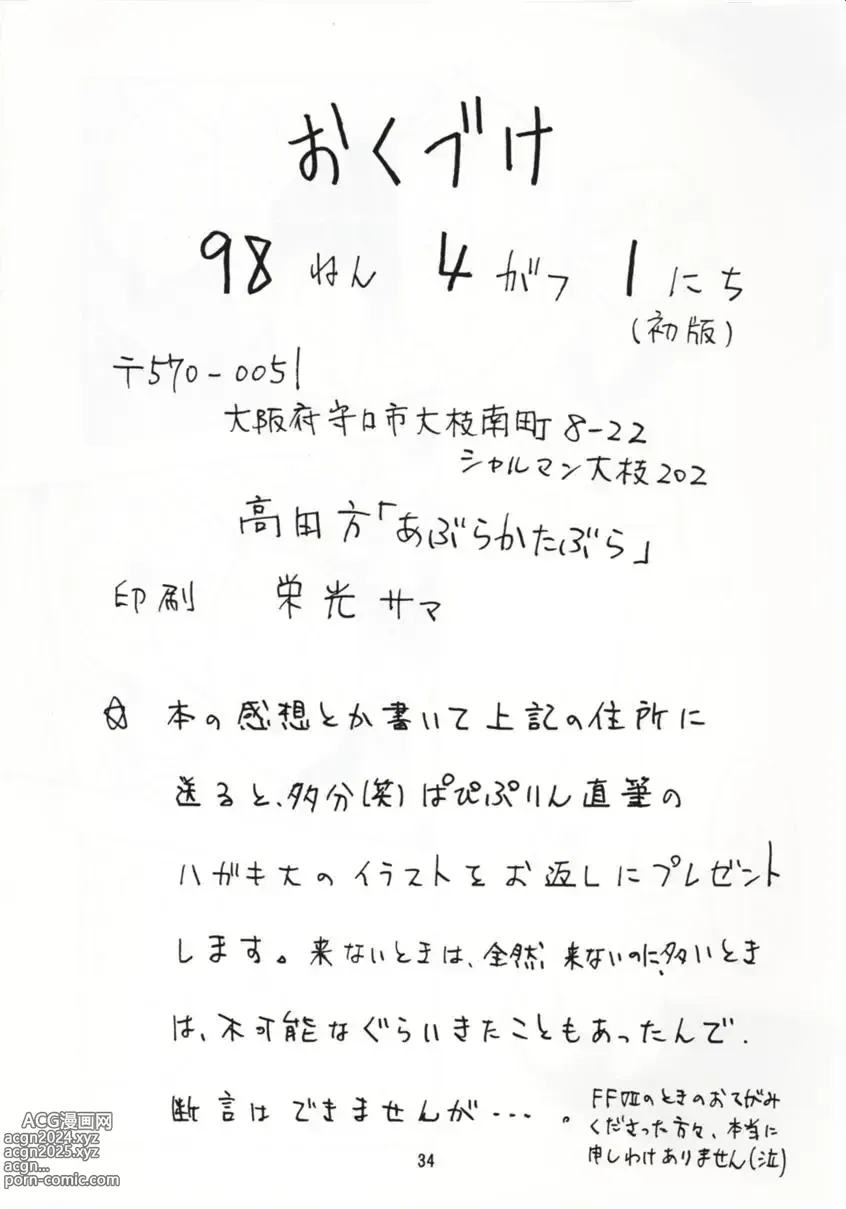 おくづけ
98ねん 4がつ 1にち
(初版)
〒570-0051
大阪府守口市大枝南町8-22
シャルマン大枝202
高田方「あぶらかたぶら」
印刷 栄光サマ
☆ 本の感想とか書いて上記の住所に
送ると、多分(笑)ぱぴぷりん直筆の
ハガキ大のイラストをお返しにプレゼント
します。来ないときは、全然来ないのに、多いとき
は、不可能なぐらいきたこともあったんで、
断言はできませんが・・・。
FFⅦのときのおてがみ
くださった方々、本当に
申しわけありません(泣)
34
ACG漫画网
acgn2024.xyz
acgn2025.xyz
acgn...
porn-comic.com